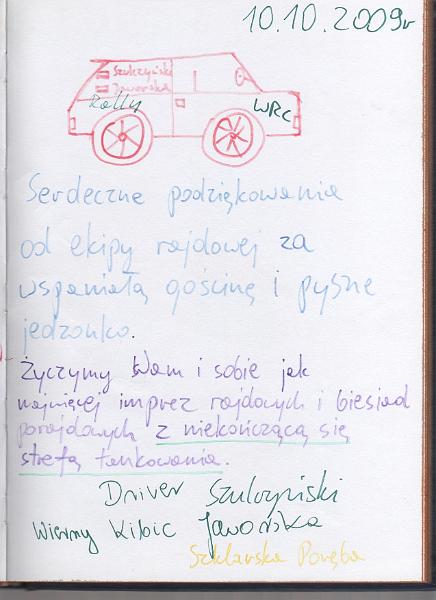 10.10.2009r
Szulczyński
Jaworska
Rally
WRC
Serdeczne podziękowania
od ekipy rajdowej za
wspaniałą gościnę i pyszne
jedzonko.
Życzymy Wam i sobie jak
najwięcej imprez rajdowych i biesiad
porajdowych z niekończącą się
strefą tankowania.
Driver Szulczyński
Wierny Kibic Jaworska
Szklarska Poręba